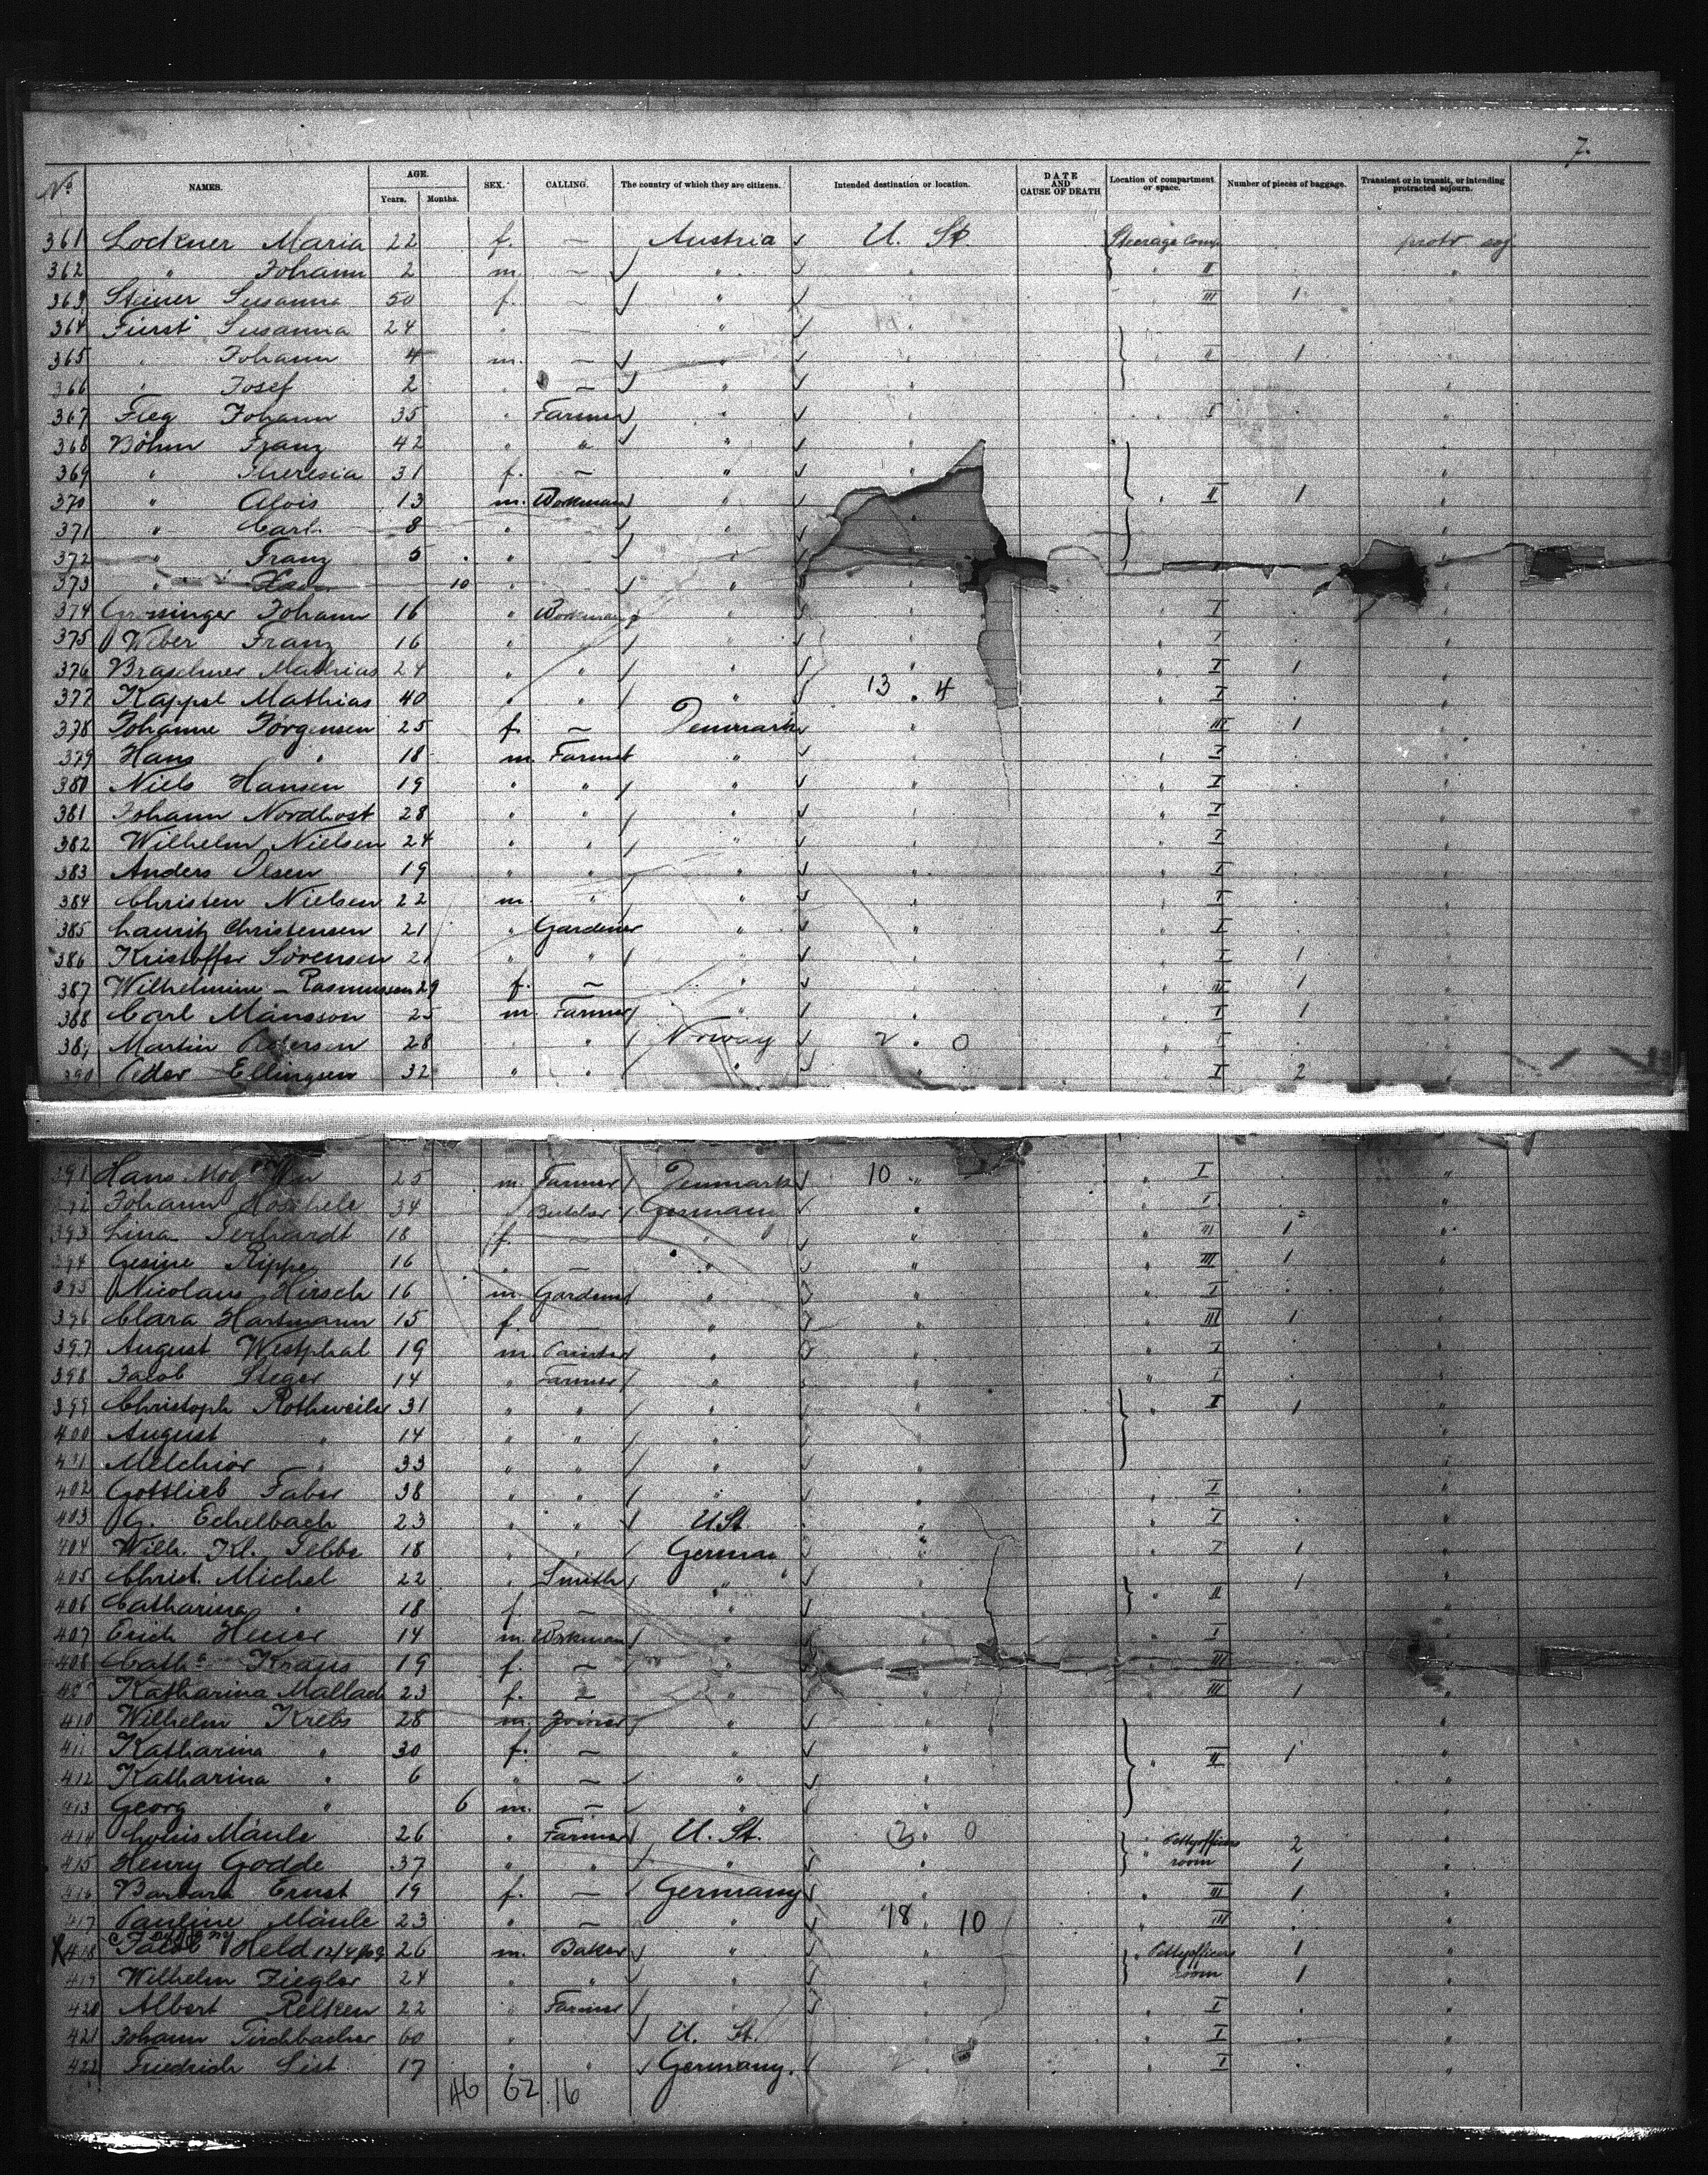 7.
No. NAMES. AGE. Years. Months. SEX. CALLING. The country of which they are citizens. Intended destination or location. DATE AND CAUSE OF DEATH Location of compartment or space. Number of pieces of baggage. Transient or in transit, or intending protracted sojourn.
361 Lockner Maria 22 f. — Austria U. St. Steerage Comp. protr soj
362 " Johann 2 m. — " " " II "
363 Steiner Susanna 50 f. — " " " III 1 "
364 Fürst Susanna 24 " — " "
365 " Johann 4 m. — " " " II 1 "
366 " Josef 2 " — " " "
367 Fleg Johann 35 " Farmer " " " I "
368 Böhm Franz 42 " " " "
369 " Theresia 31 f. — " " "
370 " Alois 13 m. Workman " " II 1 "
371 " Carl 8 " " " "
372 " Franz 5 " "
373 " 10 " "
374 Johann 16 " Workman " " " I "
375 Weber Franz 16 " " " I "
376 Braschner Mathias 24 " " " " " I 1 "
377 Kappel Mathias 40 " " " 13 . 4 " I "
378 Johanne Jörgensen 25 f. — Denmark " " III 1 "
379 Hans " 18 m. Farmer " " " I "
380 Niels Hansen 19 " " " " " I "
381 Johann Nordhost 28 " " " " " I "
382 Wilhelm Nielsen 24 " " " " " I "
383 Anders Olsen 19 " " " " " I "
384 Christen Nielsen 22 m. " " " " I "
385 Lauritz Christensen 21 " Gardener " " " I "
386 Kristoffer Sörensen 21 " " " " " I 1 "
387 Wilhelmine — Rasmussen 29 f. — " " " III 1 "
388 Carl Mänsson 25 m. Farmer " " " I 1 "
389 Martin Pedersen 28 " " Norway 2 . 0 " I "
390 Peder Ellingsen 32 " " " " " I 2
391 Hans 25 m. Farmer Denmark 10 " " I "
Johann 34 Butcher Germany " " I "
393 Lina Gerhardt 18 f. — " " " III 1 "
394 Gesine Ripper 16 " — " " " III 1 "
395 Nicolaus Hirsch 16 m. Gardener " " " I "
396 Clara Hartmann 15 f. — " " " III 1 "
397 August Westphal 19 m. Painter " " " I "
398 Jacob Steger 14 " Farmer " " " I "
399 Christoph Rothweiler 31 " " " " " I 1 "
400 August " 14 " " " " "
401 Melchior " 33 " " " " "
402 Gottlieb Faber 38 " " " " " I "
403 G. Echelbach 23 " " U.St. " " I "
404 Wilh. Kl. Tebbe 18 " " German " " I 1 "
405 Christ. Michel 22 " Smith " " 1 "
406 Catharina " 18 f. — " " " II "
407 Erich Heuer 14 m. Workman " " " I "
408 Catha Kraus 19 f. — " " " III "
409 Katharina Mallach 23 f. — " " " III 1 "
410 Wilhelm Krebs 28 m. Joiner " " "
411 Katharina " 30 f. — " " " II 1 "
412 Katharina " 6 " — " " "
413 Georg " 6 m. — " " "
414 Louis Mäule 26 " Farmer U. St. 2 . 0 " Pettyofficers 2 "
415 Henry Godde 37 " " " " " room 1 "
416 Barbara Ernst 19 f. — Germany " " III 1 "
417 Pauline Mäule 23 " — " 18 . 10 " III "
X 418 Jacob Held 26 m. Baker " " " Pettyofficers 1 "
419 Wilhelm Ziegler 24 " " " " room 1 "
420 Albert Relken 22 " Farmer " " " I "
421 Johann Tirchbacher 60 " U. St. " " I "
422 Friedrich List 17 " " Germany. " " I "
46 62 16